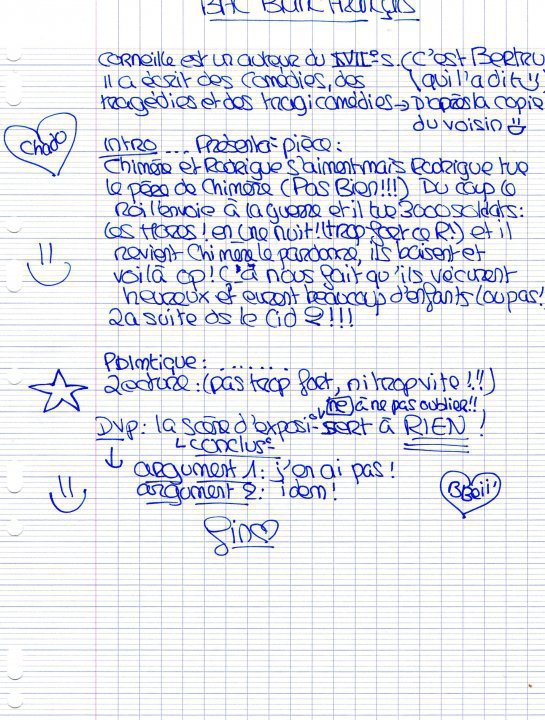 BAC BLANC FRANÇAIS
Corneille est un auteur du XVIIe s. (c'est Bertru
Il a écrit des comédies, des qui l'a dit !)
tragédies et des tragicomédies → D'après la copie
du voisin
Chado
Intro ... Présentat° pièce :
Chimène et Rodrigue s'aiment mais Rodrigue tue
le père de Chimène (Pas Bien !!!) Du coup le
Roi l'envoie à la guerre et il tue 3000 soldats :
les Mores ! en une nuit ! (trop fort ce R !) et il
revient Chimène le pardonne, ils baisent et
voilà op ! Ç'à nous fait qu'ils vécurent
heureux et eurent beaucoup d'enfants (ou pas !
La suite ds le Cid 2 !!!
Pblmtique : .......
Lecture : (pas trop fort, ni trop vite !!!)
(ne) à ne pas oublier !!
DVP : la scène d'exposi° sert à RIEN !
↳ conclus°
↓ argument 1 : j'en ai pas !
argument 2 : idem !
BBeii'
Fin